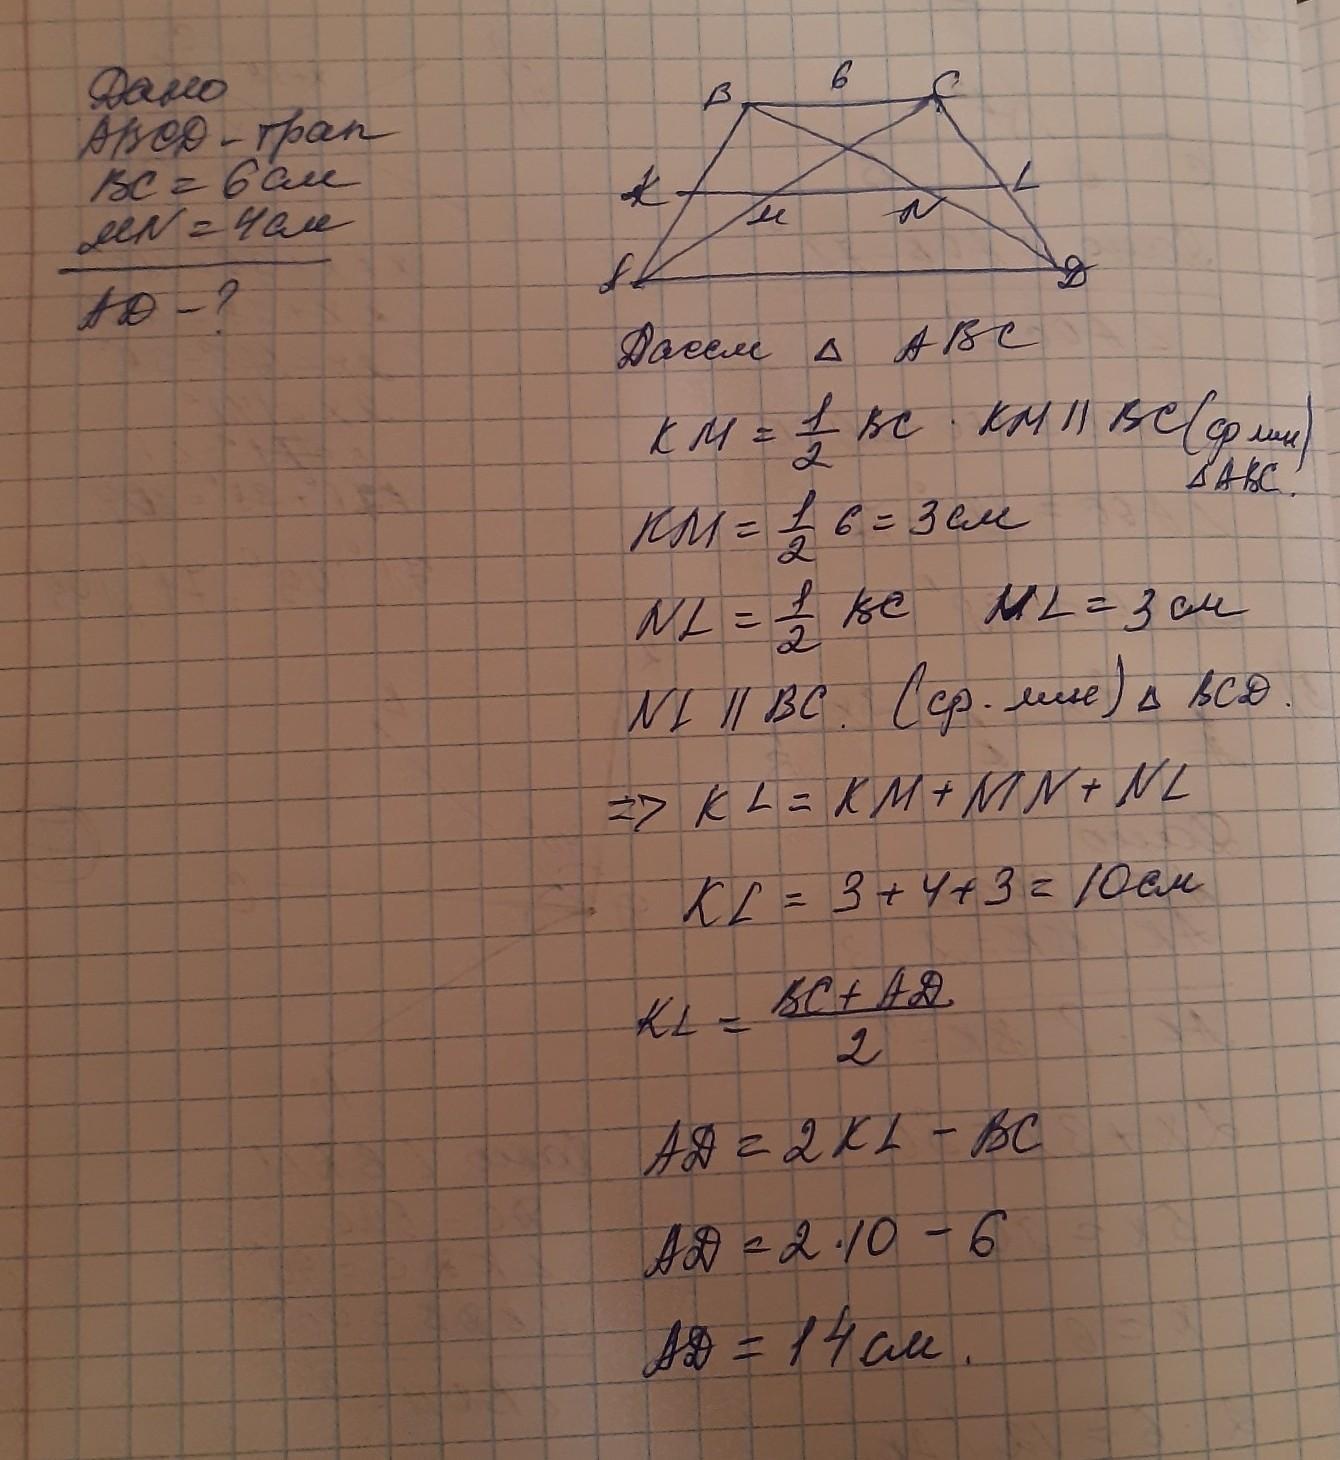 Дано
ABCD - трап
BC = 6 см
MN = 4 см
AD - ?
B 6 C
K M N L
A D
Δ ABC
KM = 1/2 BC . KM || BC (ср лин)
Δ ABC.
KM = 1/2 6 = 3 см
NL = 1/2 BC NL = 3 см
NL || BC. (ср. лин) Δ BCD.
=> KL = KM + MN + NL
KL = 3 + 4 + 3 = 10 см
KL = BC + AD / 2
AD = 2KL - BC
AD = 2 · 10 - 6
AD = 14 см.